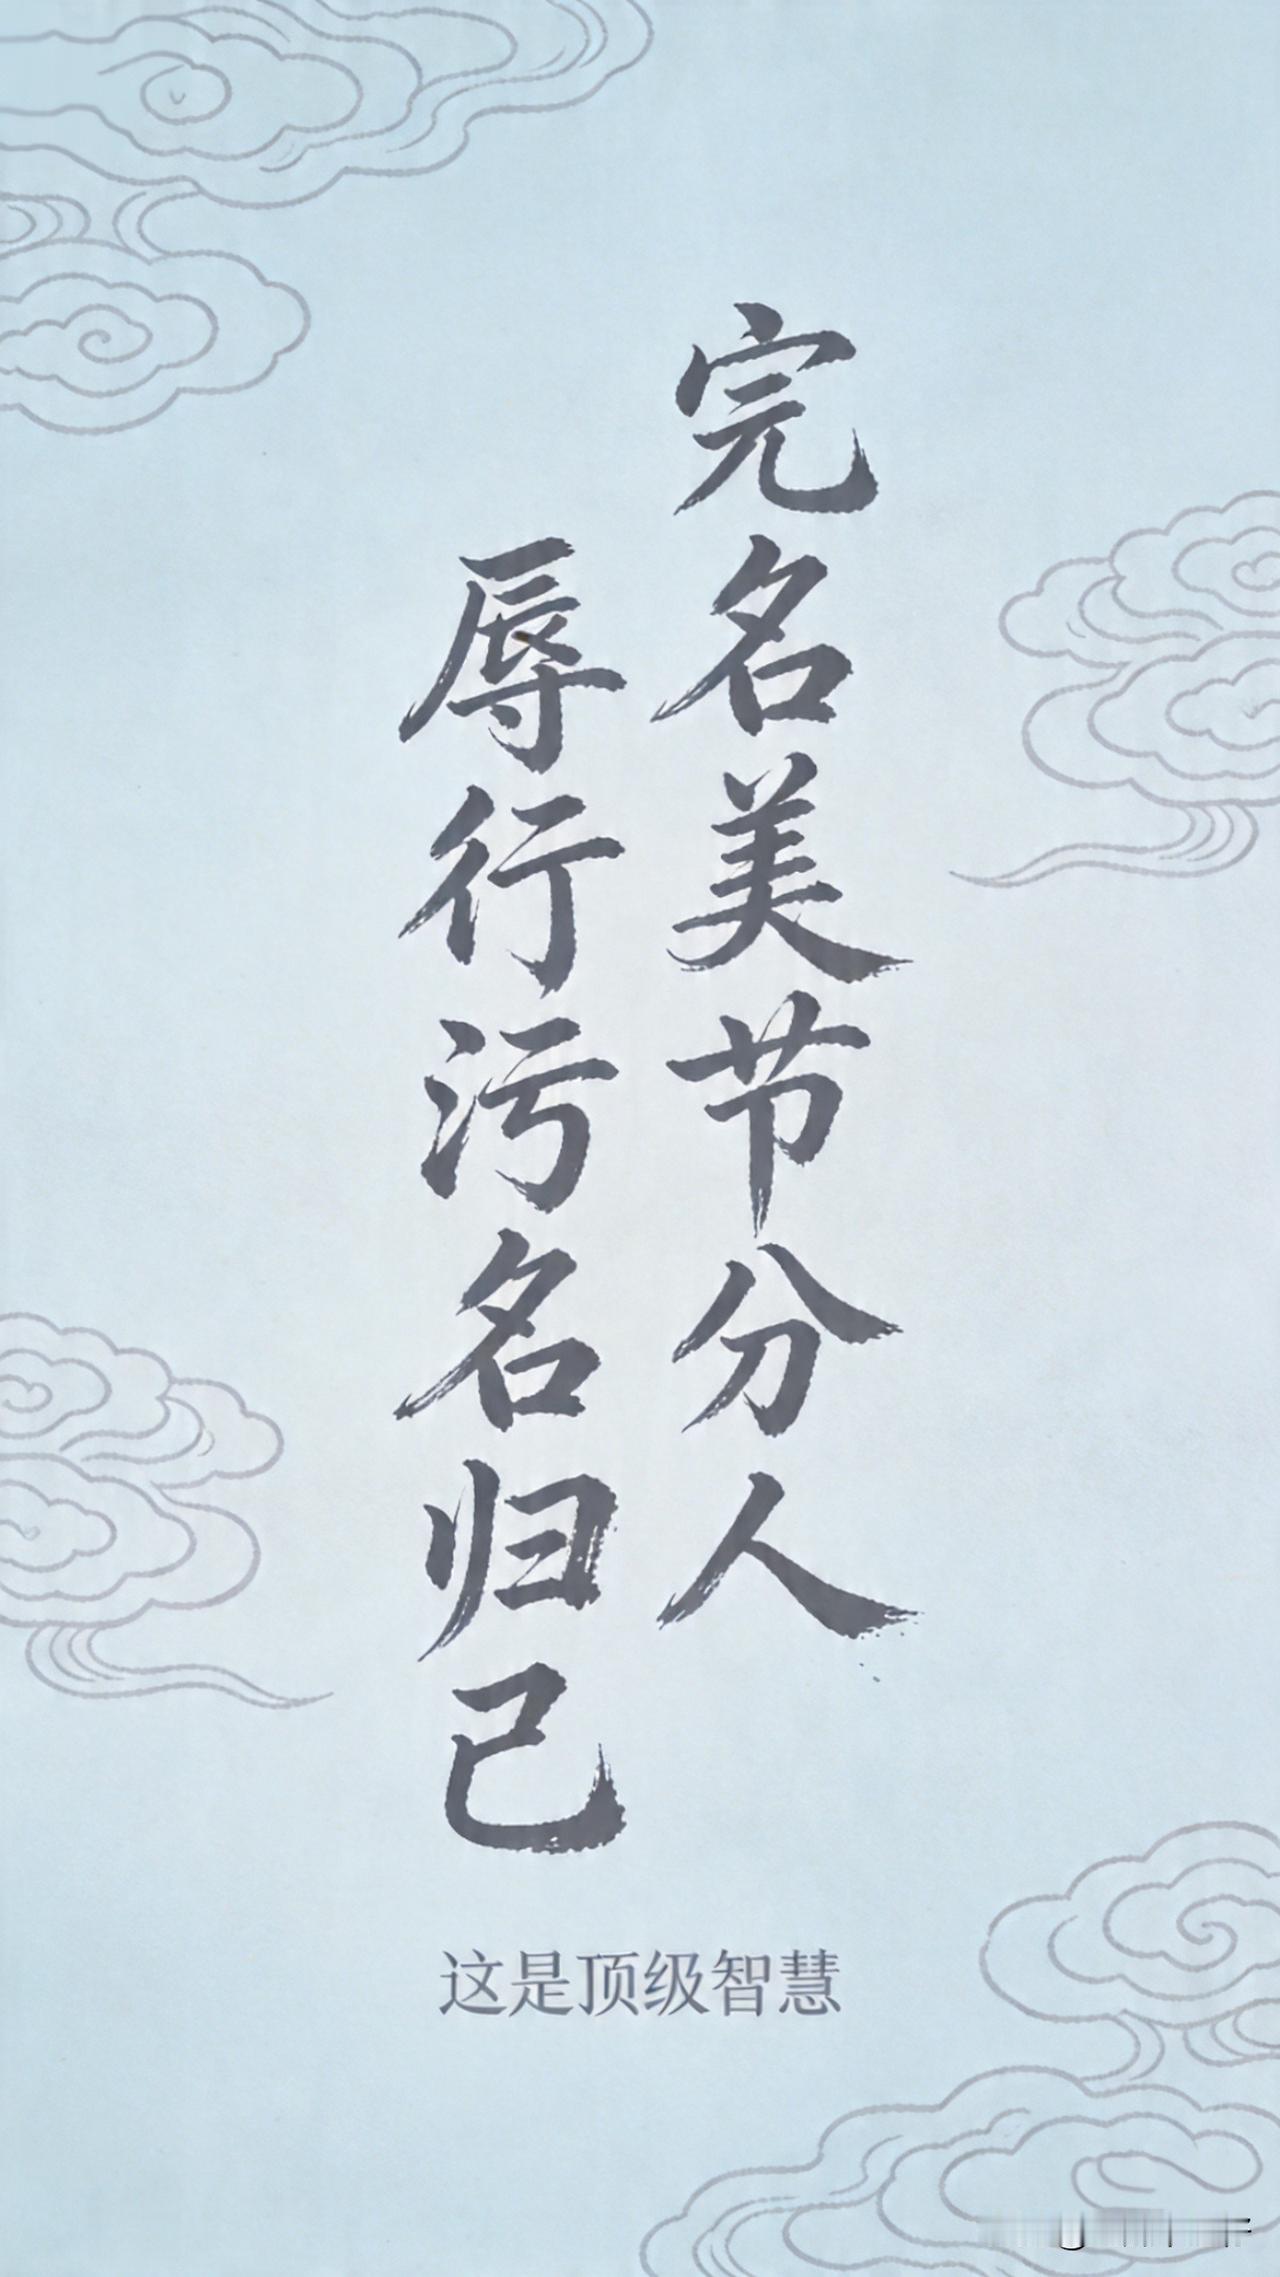 完名美节分人
辱行污名归己
这是顶级智慧